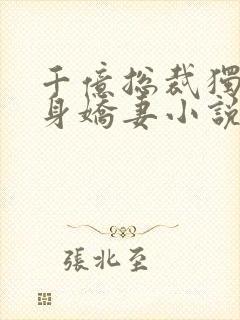 千億總裁獨
身嬌妻小説
張北至